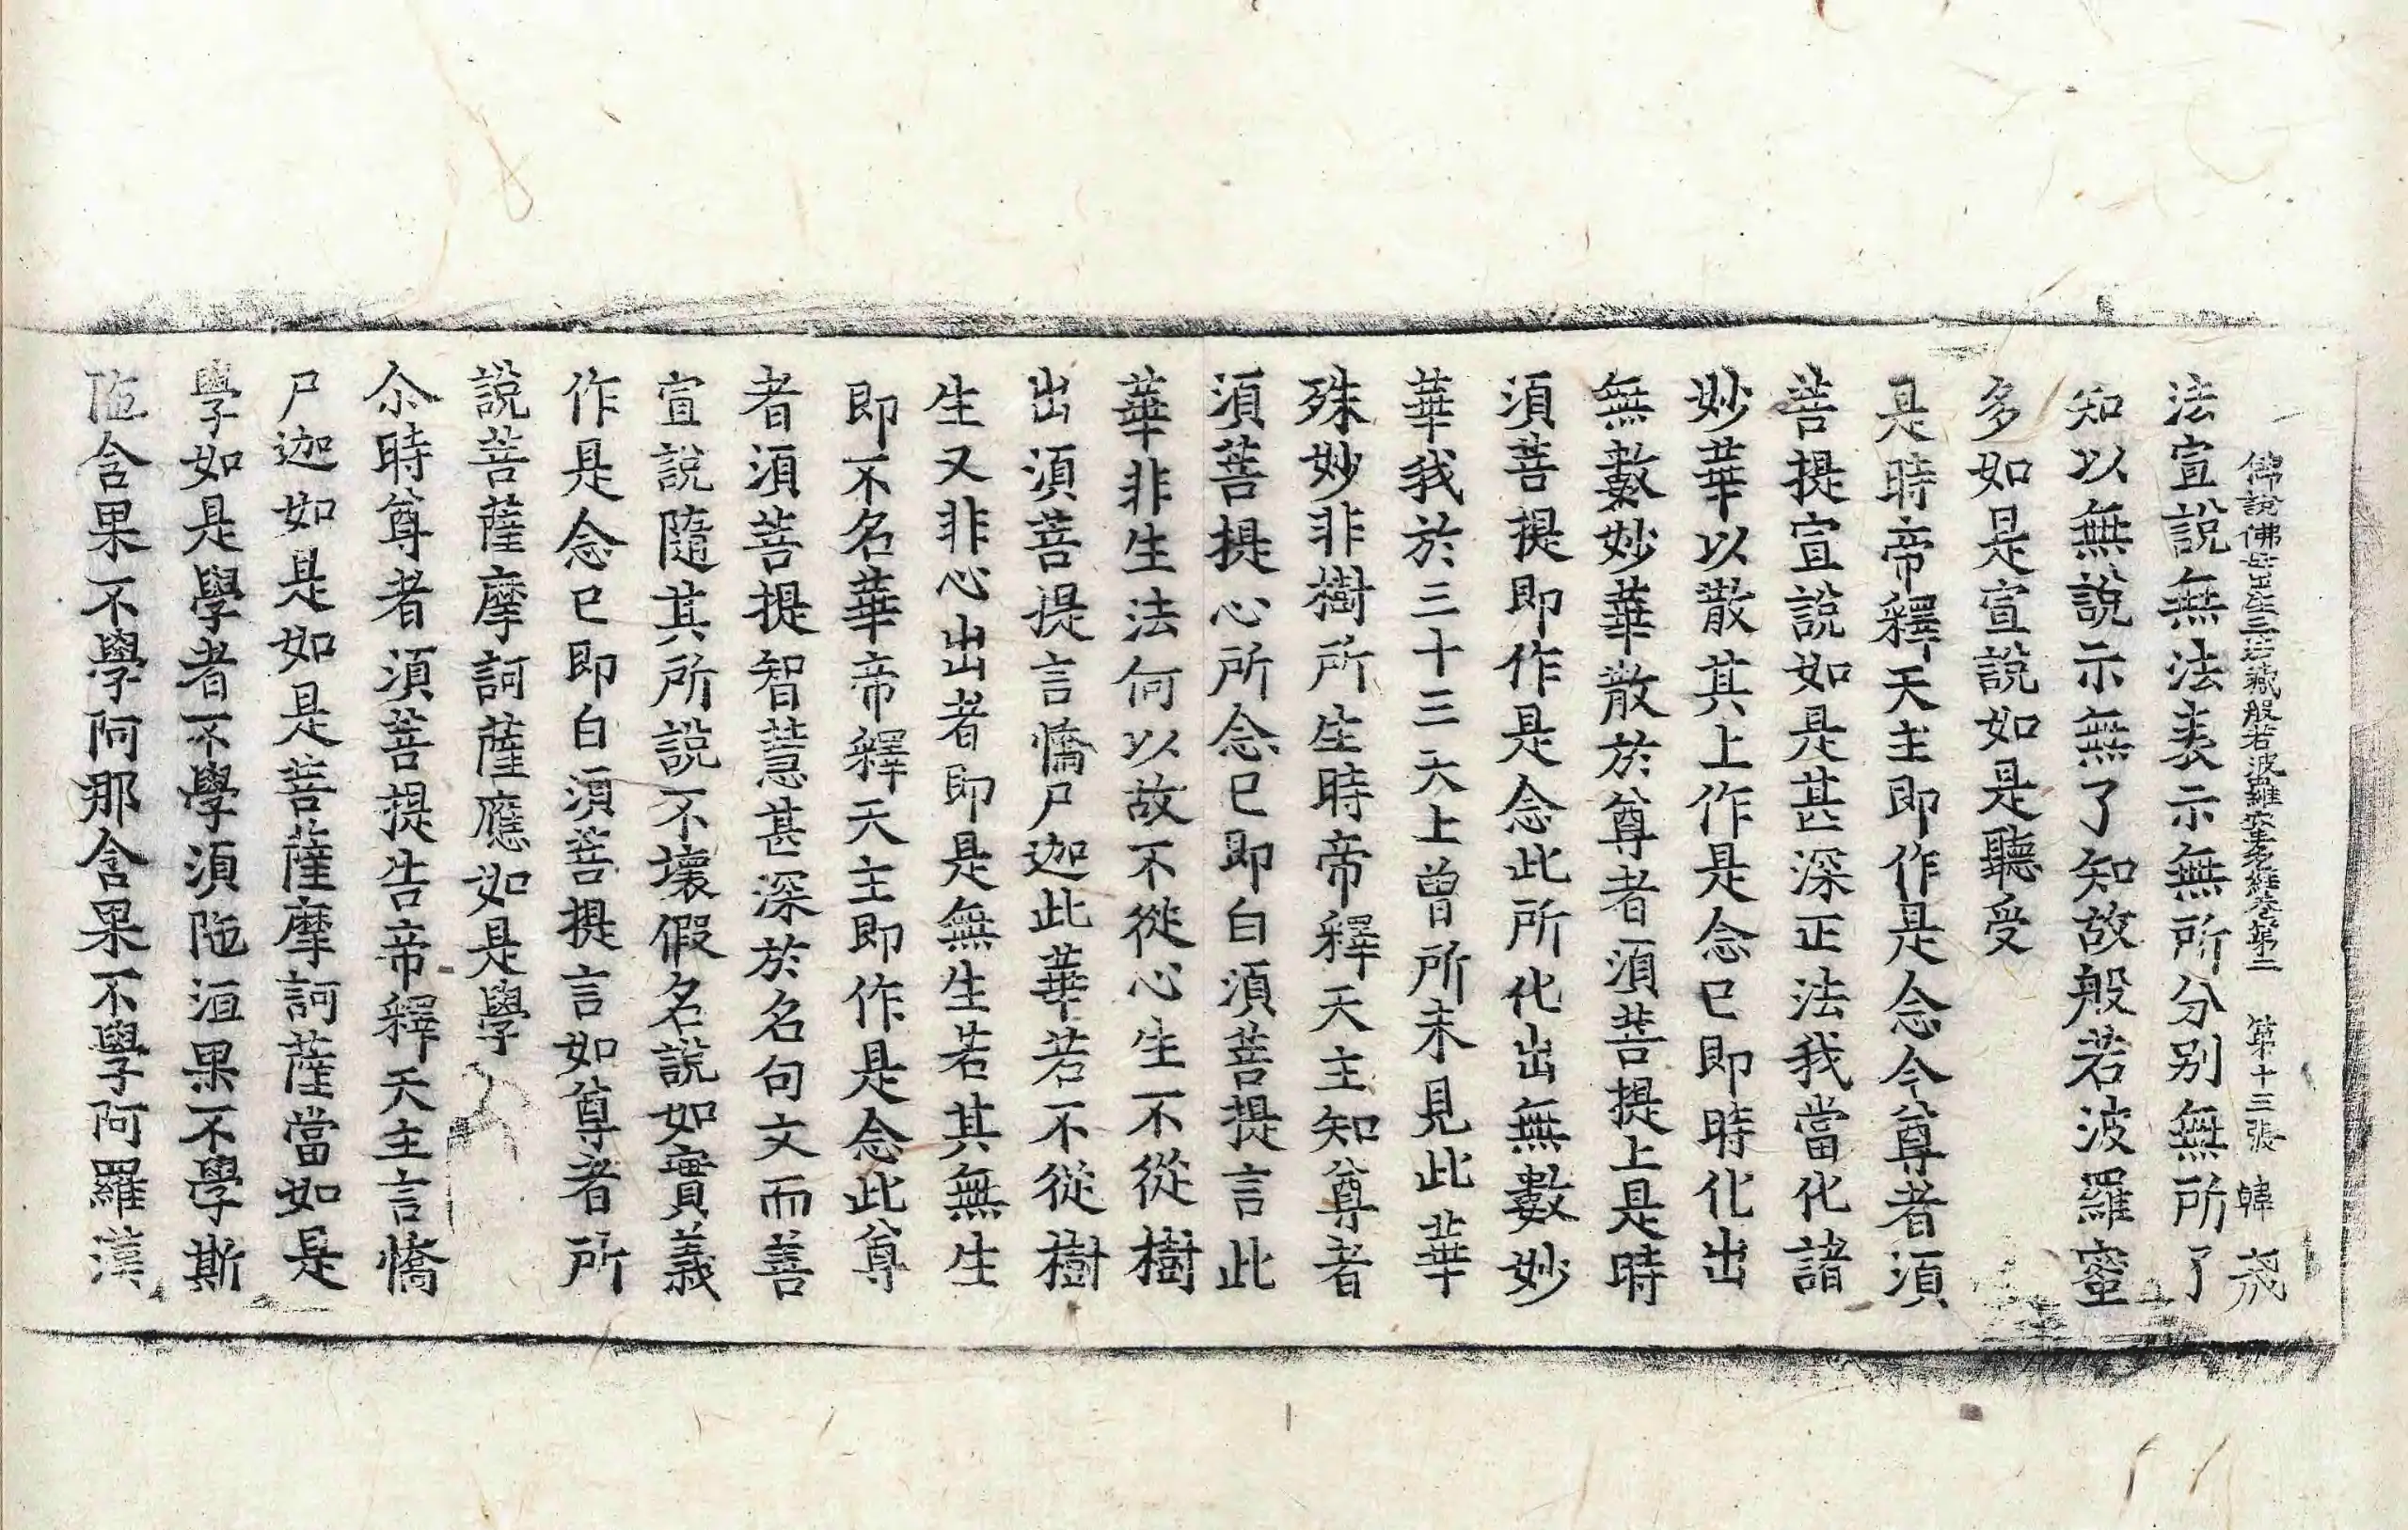 佛說佛母出生三法藏般若波羅蜜多經卷第二 第十三張 韓
法宣說無法表示無所分别無所了
知以無說示無了知故般若波羅蜜
多如是宣說如是聽受
是時帝釋天主即作是念今尊者須
菩提宣說如是甚深正法我當化諸
妙華以散其上作是念已即時化出
無數妙華散於尊者須菩提上是時
須菩提即作是念此所化出無數妙
華我於三十三天上曾所未見此華
殊妙非樹所生時帝釋天主知尊者
須菩提心所念已即白須菩提言此
華非生法何以故不從心生不從樹
出須菩提言憍尸迦此華若不從樹
生又非心出者即是無生若其無生
即不名華帝釋天主即作是念此尊
者須菩提智慧甚深於名句文而善
宣說隨其所說不壞假名說如實義
作是念已即白須菩提言如尊者所
說菩薩摩訶薩應如是學
尒時尊者須菩提告帝釋天主言憍
尸迦如是如是菩薩摩訶薩當如是
學如是學者不學須陁洹果不學斯
陁含果不學阿那含果不學阿羅漢